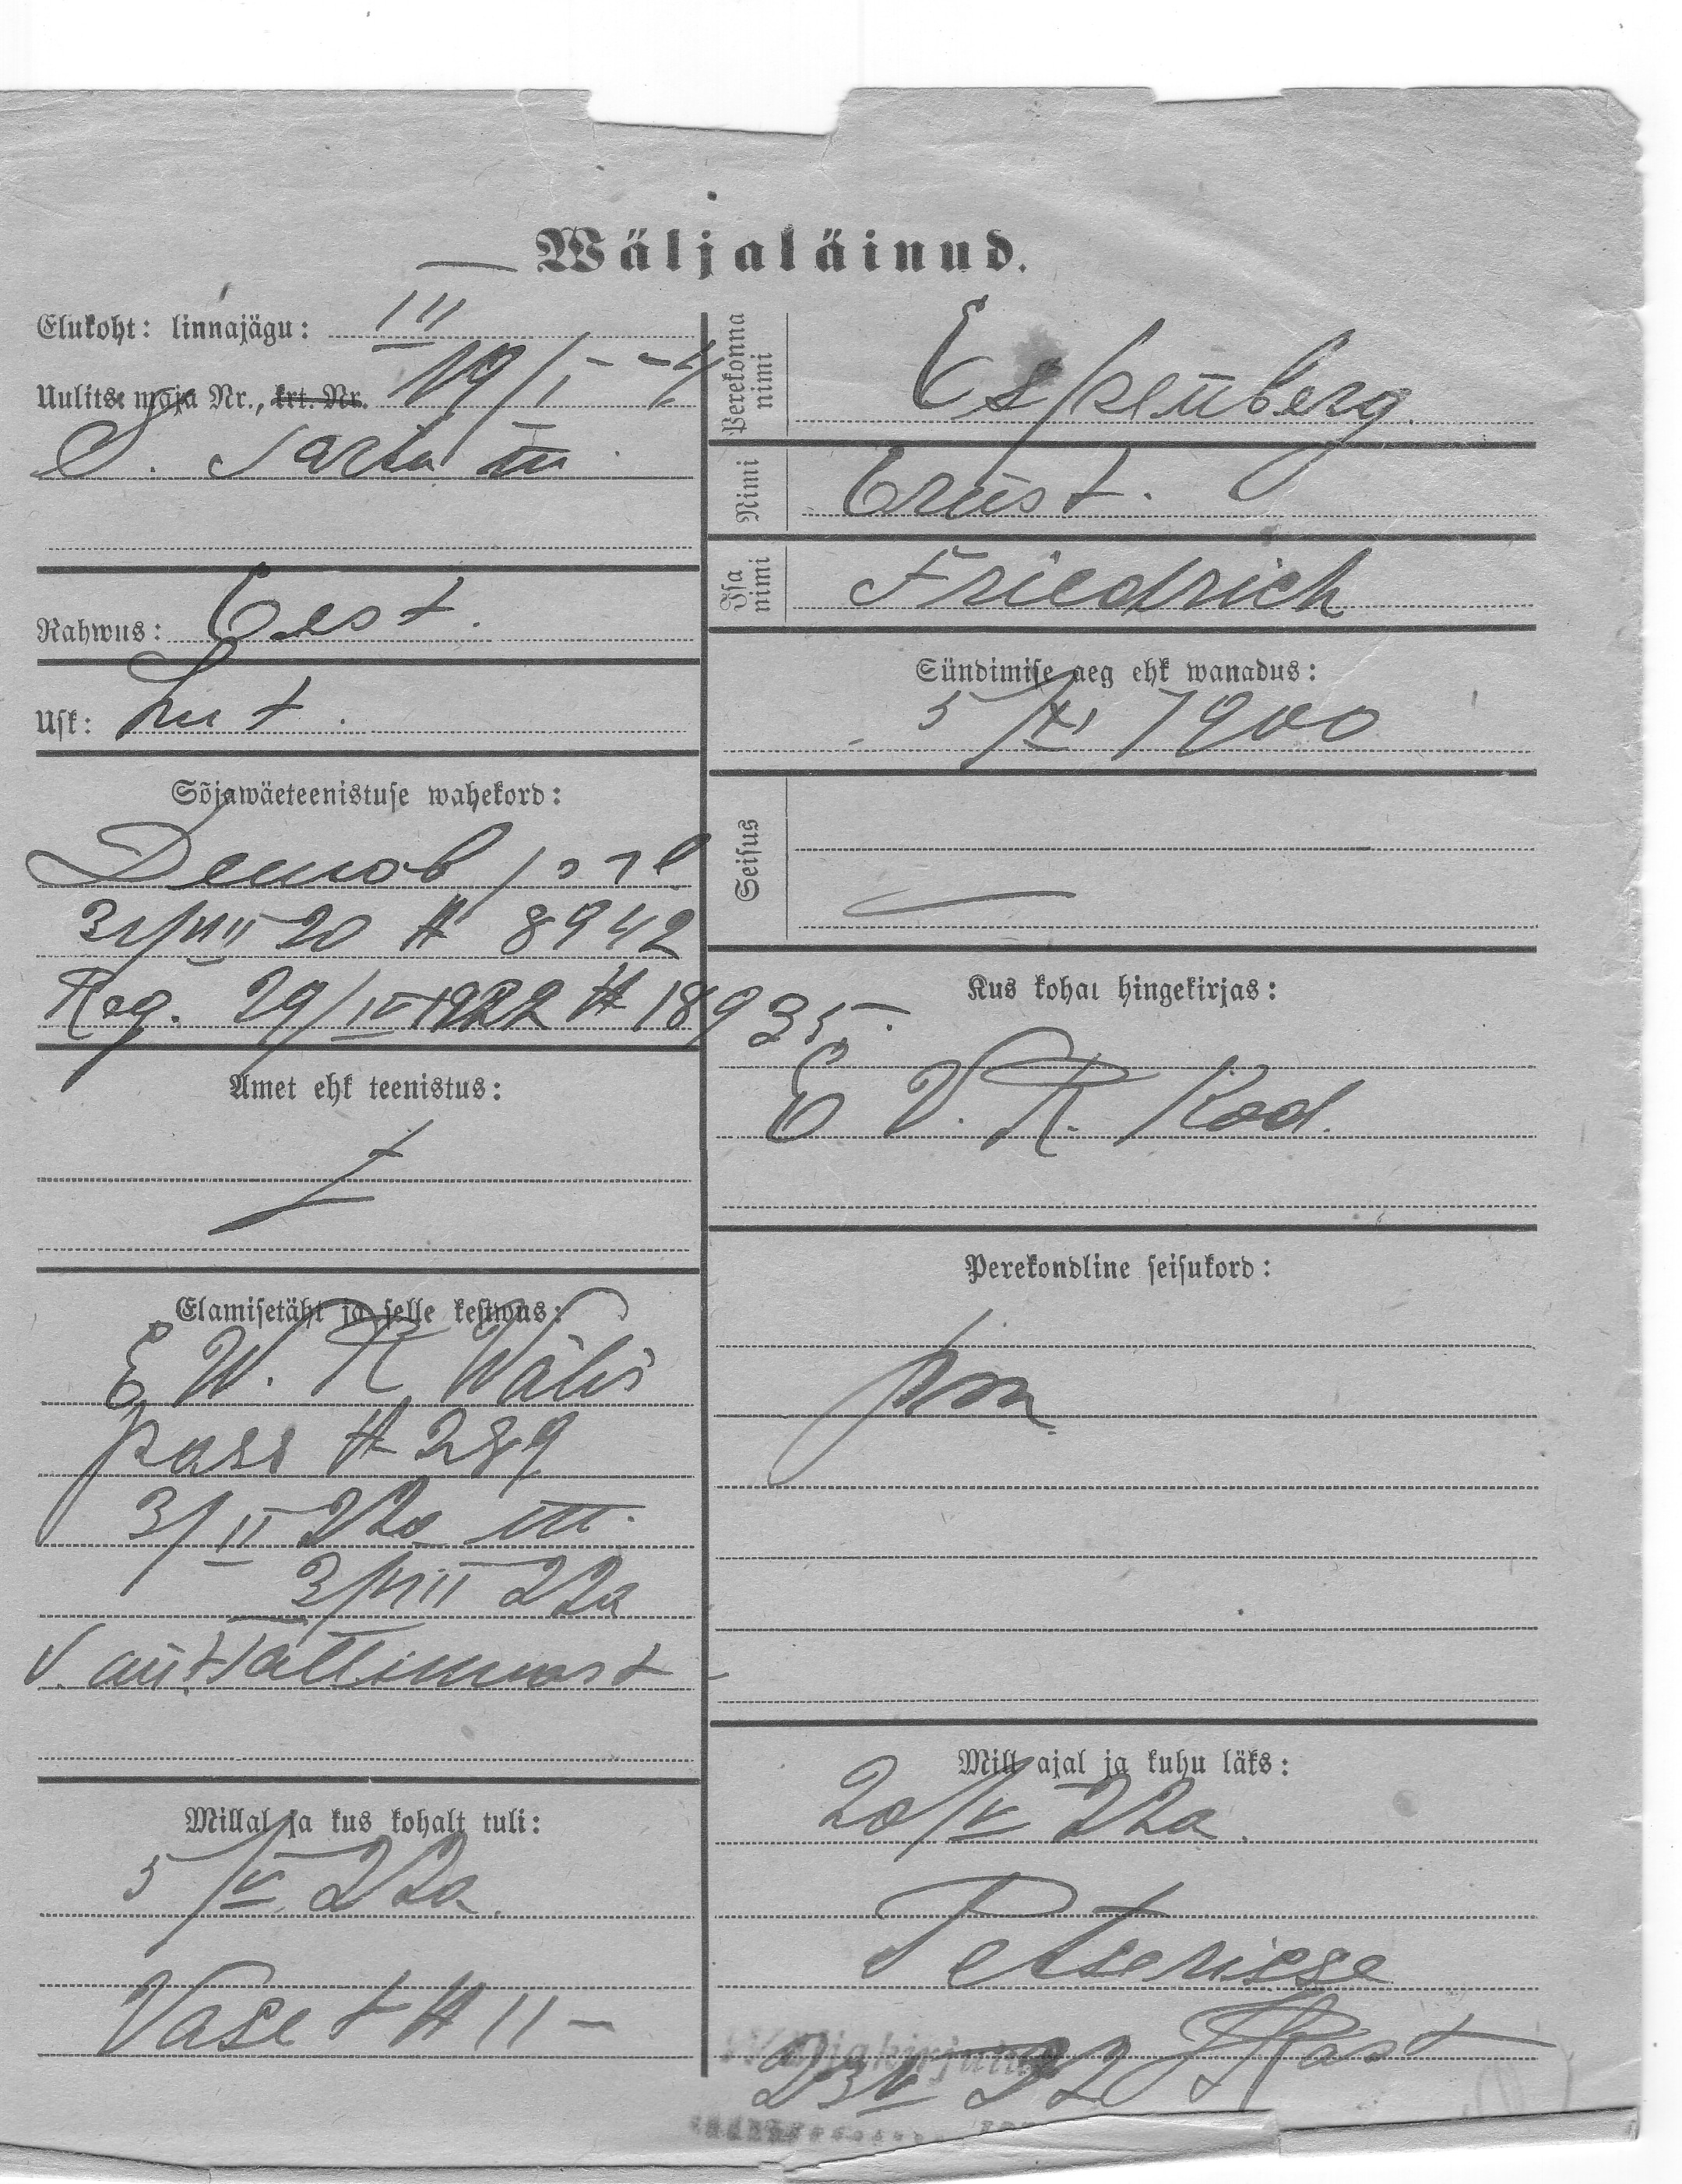 Wäljaläinud.
Elukoht: linnajägu: III
Uulits: maja Nr., krt. Nr. 19/I - 4
S. Tartu m
Rahwus: Eest.
Usk: Lut.
Sõjawäeteenistuse wahekord:
Demob
31/VIII 20 № 8942
Reg. 29/IV 1922 № 18935.
Amet ehk teenistus:
Elamisetäht ja selle kestwus:
E W. R Wälis
pass № 289
3/II 22a
3/VIII 22a
v. ant. Tallinnast
Millal ja kus kohalt tuli:
5/V 22a.
Vase t № 11 -
Perekonna nimi
Espenberg.
Nimi
Ernst.
Isa nimi
Friedrich
Sündimise aeg ehk wanadus:
5/XI 1900
Seisus
Kus kohal hingekirjas:
E V. R. Kod.
Perekondline seisukord:
pm
Mill ajal ja kuhu läks:
20/V 22a.
Petserisse
Wäljakirjutatud
23/V 22